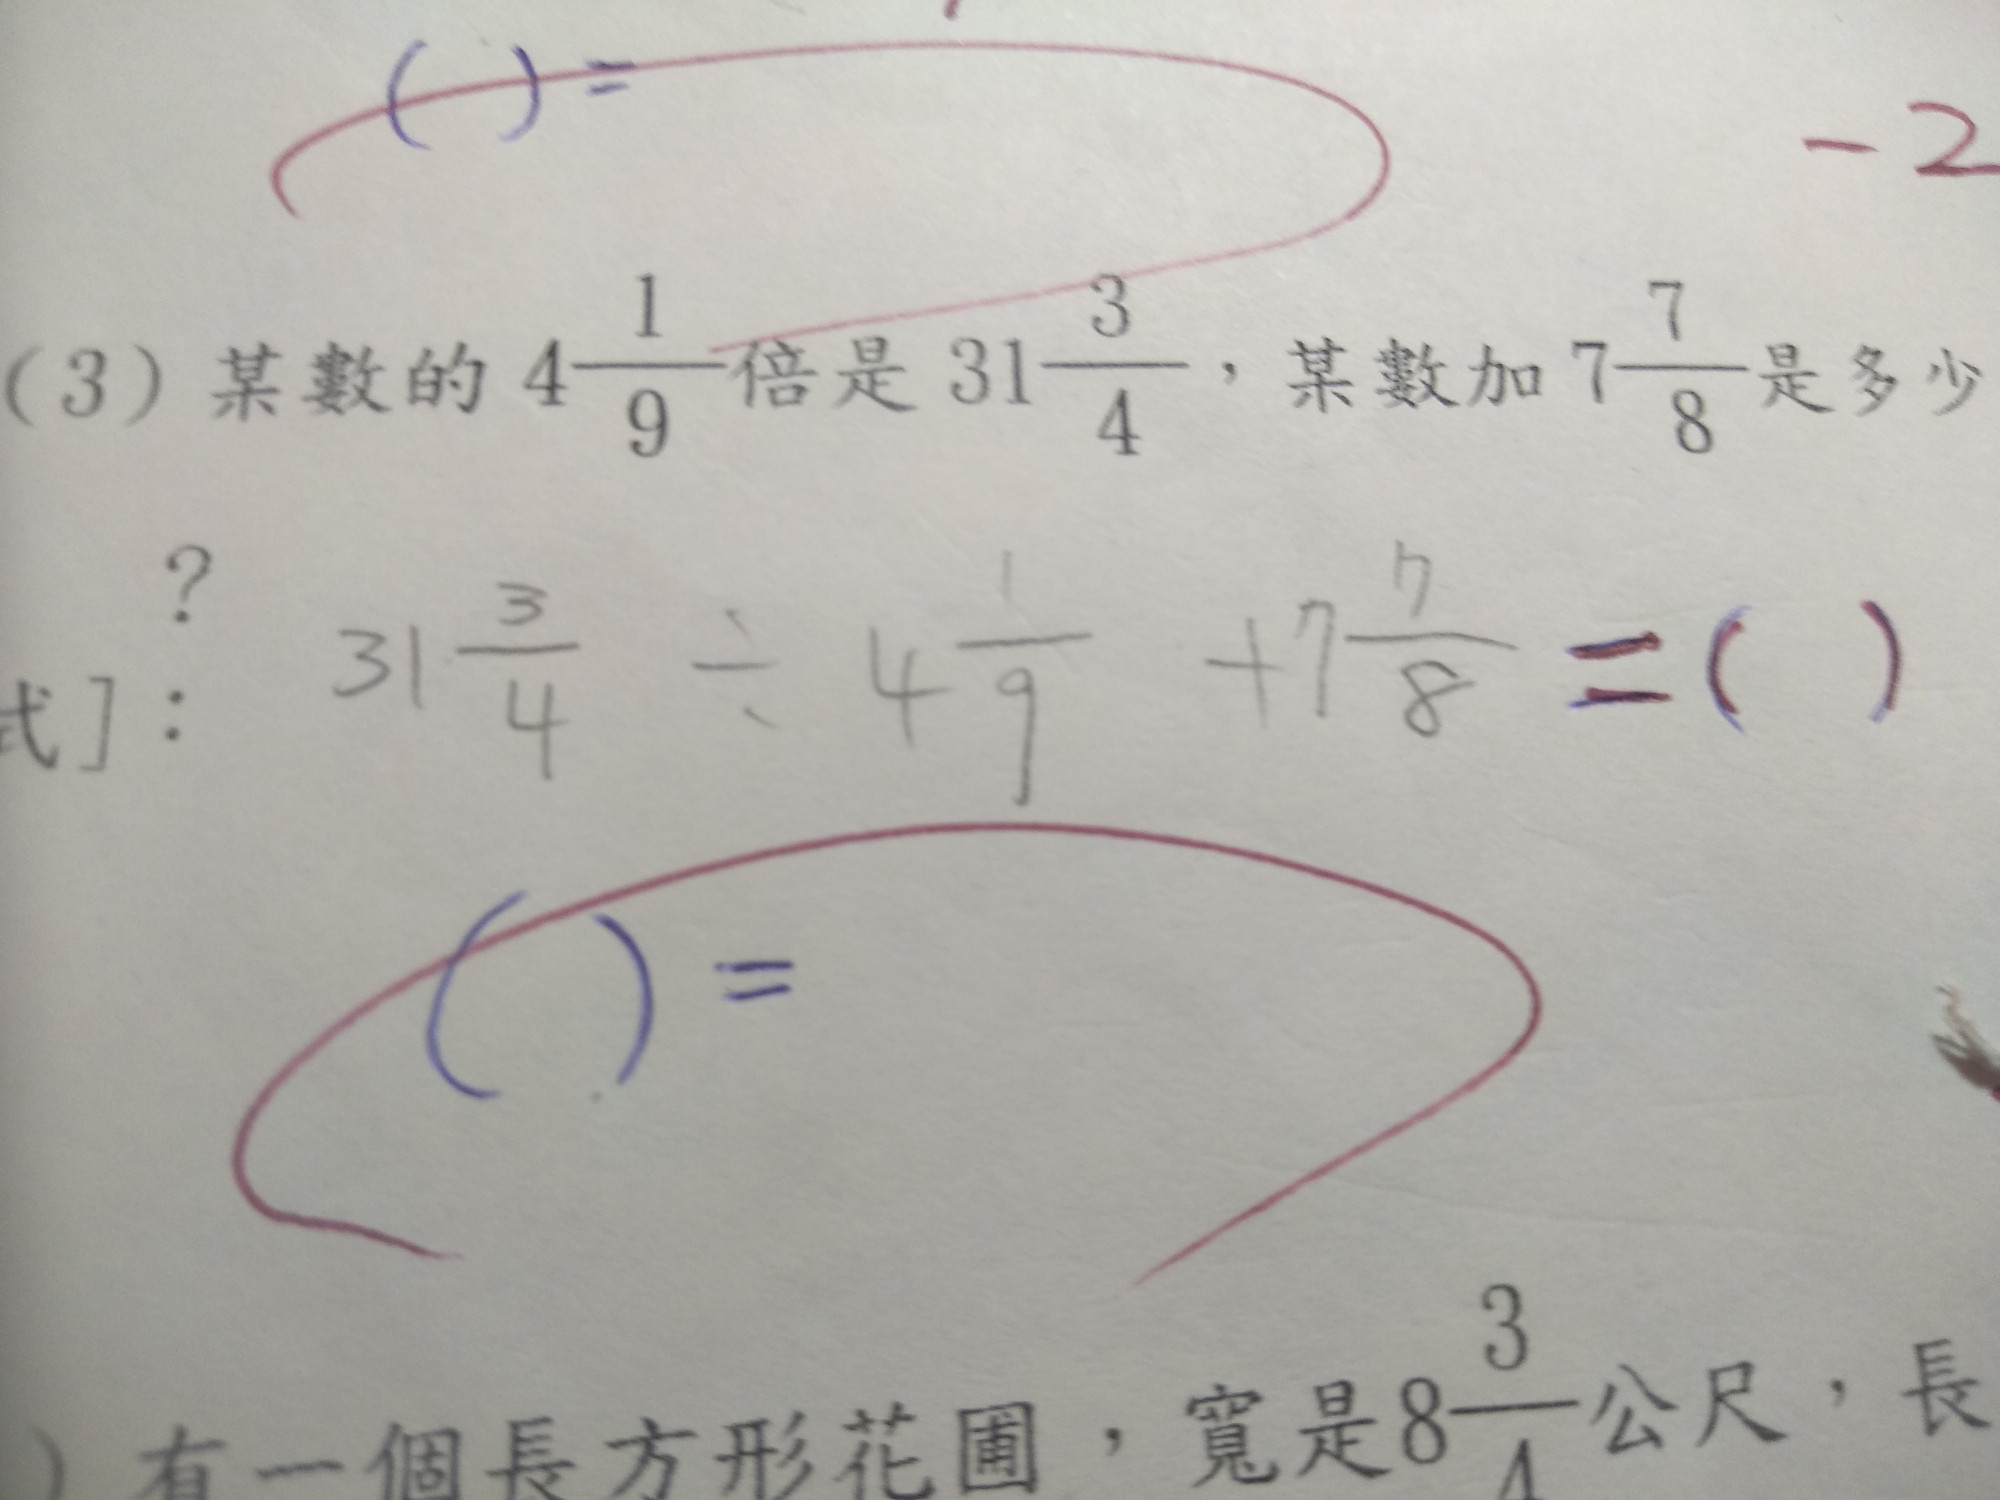 ( ) =
-2
(3) 某數的 4 1/9 倍是 31 3/4，某數加 7 7/8 是多少
?
式]： 31 3/4 ÷ 4 1/9 + 7 7/8 = ( )
( ) =
) 有一個長方形花圃，寬是8 3/4 公尺，長